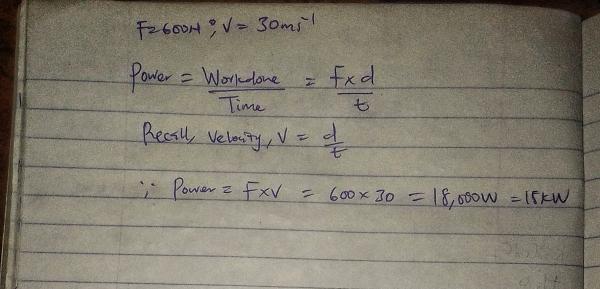 F=600N; V = 30ms⁻¹
Power = Workdone / Time = Fxd / t
Recall, Velocity, V = d / t
∴ Power = FxV = 600 x 30 = 18,000W = 18KW